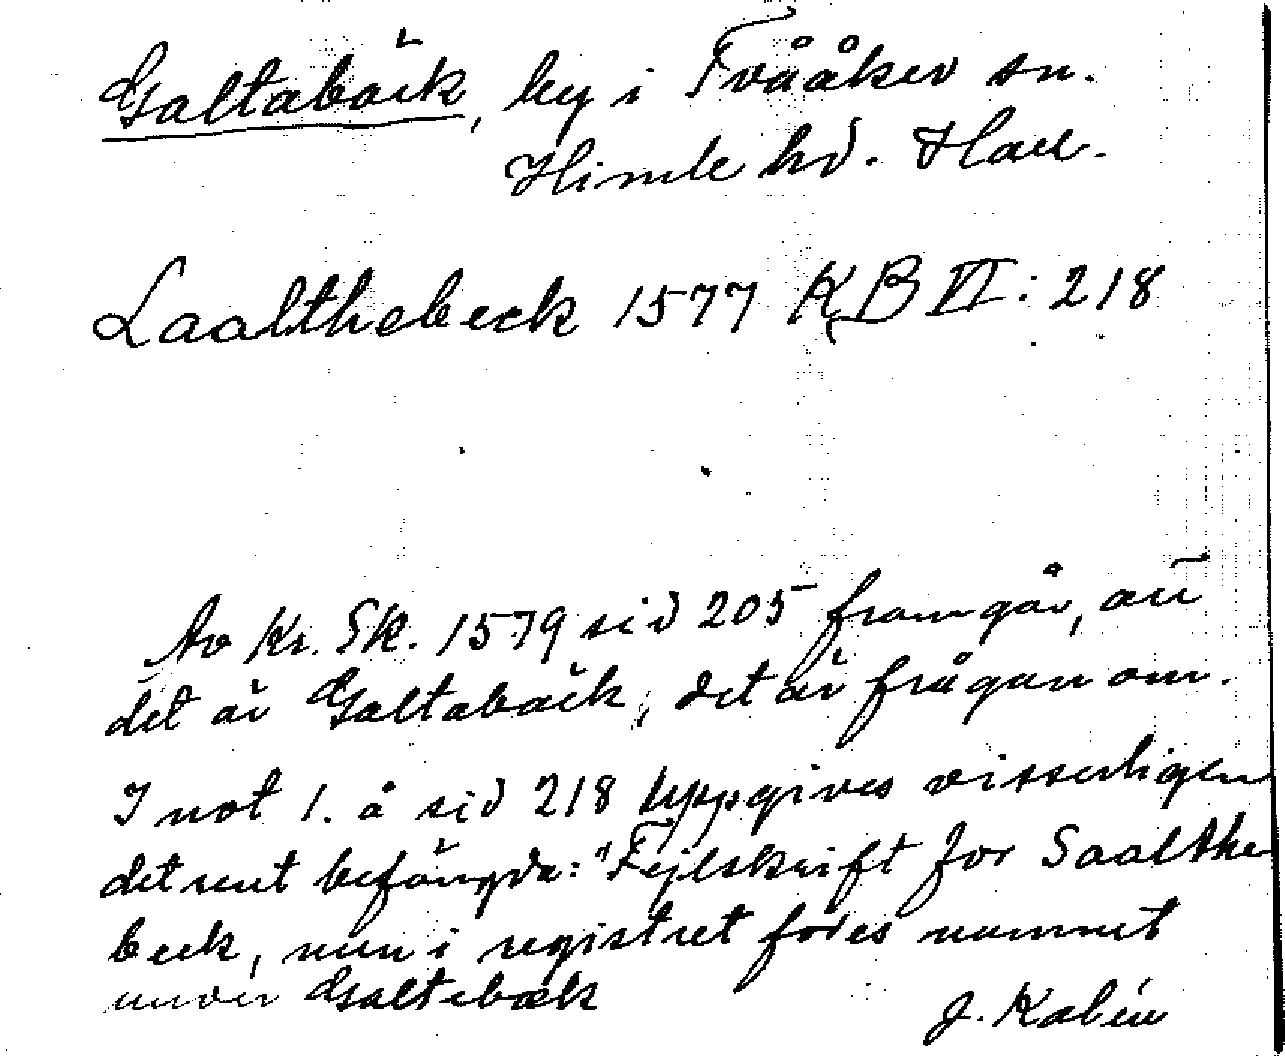 Galtabäck, by i Tvååker sn.
Himle hd. Hall.
Laalthebeck 1577 KB VI: 218
Av Kr. Sk. 1579 sid 205 framgår, att
det är Galtabäck, det är frågan om.
I not 1. å sid 218 uppgives visserligen
det rent befängda: "Fejlskrift for Saalthe
beck, men i registret föres namnet
under Galtebæk
J. Kalén